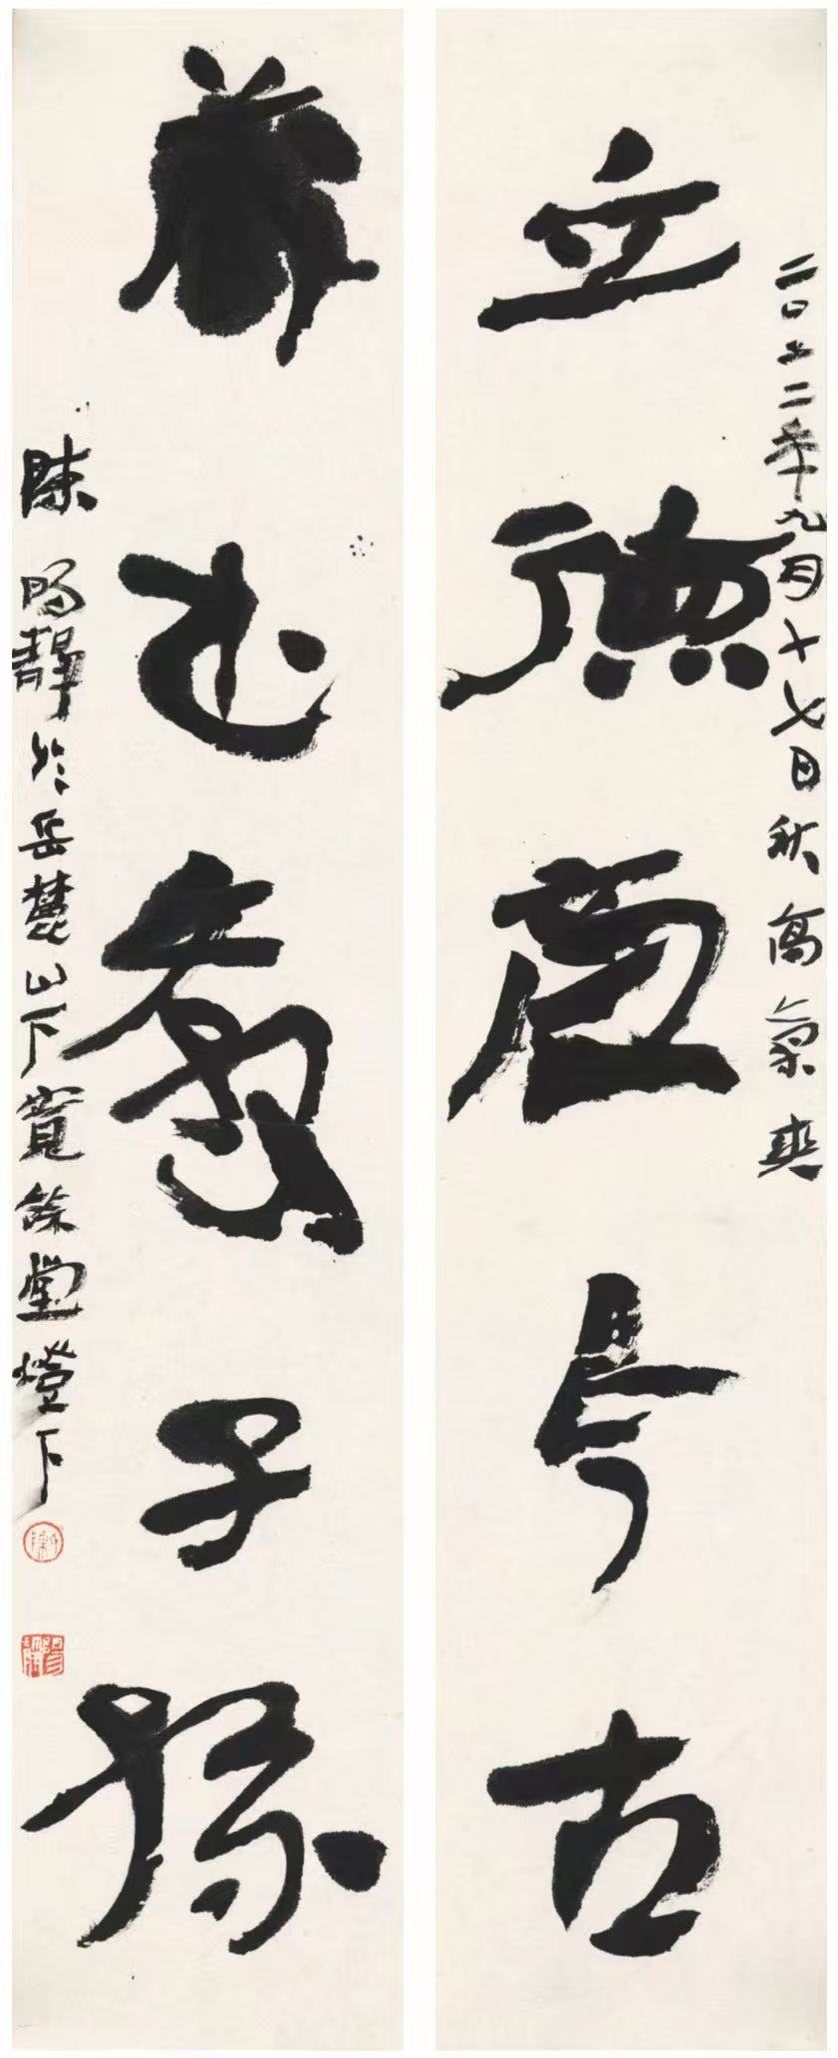 二〇二二年九月十七日秋高氣爽
立德齊今古
藏書教子孫
陳暘靜於岳麓山下寬餘堂燈下